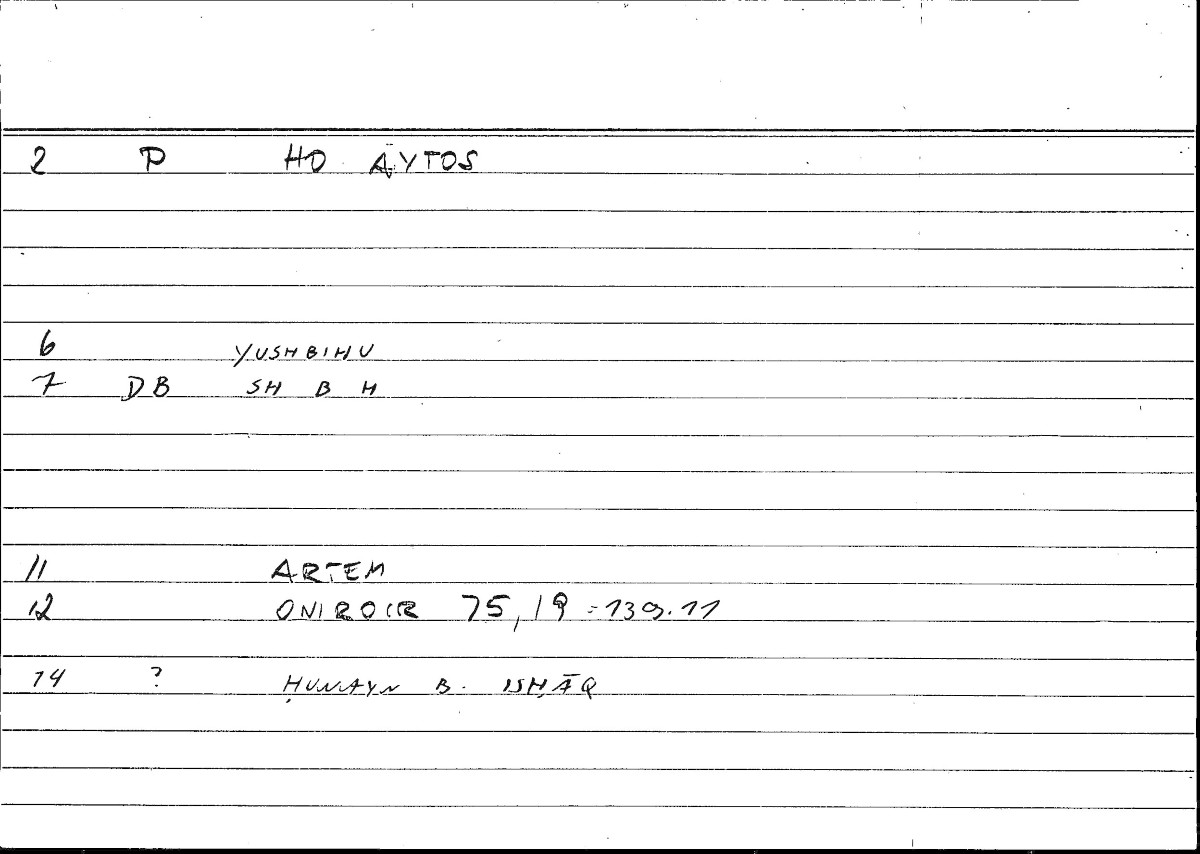 2 P HO AYTOS
6 YUSHBIHU
7 DB SH B H
11 ARTEM
12 ONIROCR 75,19 = 139.11
14 ? ḤUNAYN B. ISḤĀQ